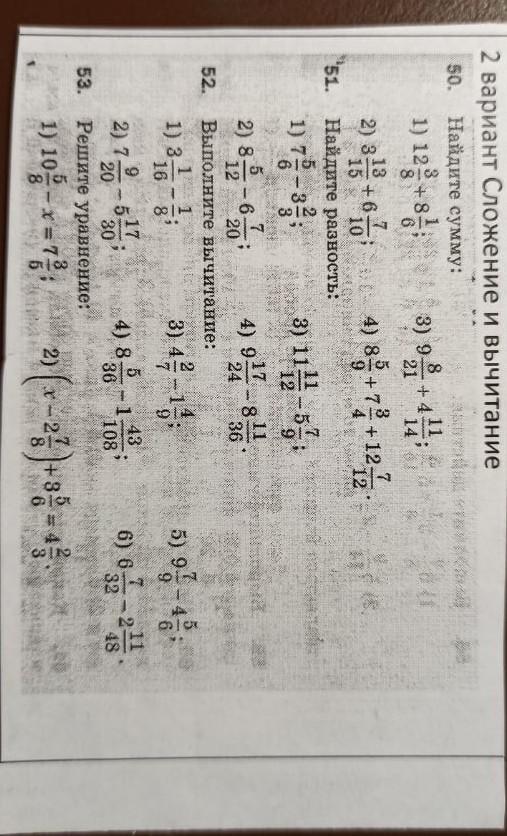 2 вариант Сложение и вычитание
50. Найдите сумму:
1) 12 3/8 + 8 1/6; 3) 9 8/21 + 4 11/14;
2) 3 13/15 + 6 7/10; 4) 8 5/9 + 7 3/4 + 12 7/12.
51. Найдите разность:
1) 7 5/6 − 3 2/3; 3) 11 11/12 − 5 7/9;
2) 8 5/12 − 6 7/20; 4) 9 17/24 − 8 11/36.
52. Выполните вычитание:
1) 3 1/16 − 1/8; 3) 4 2/7 − 1 4/9; 5) 9 7/9 − 4 5/6;
2) 7 9/20 − 5 17/30; 4) 8 5/36 − 1 43/108; 6) 6 7/32 − 2 11/48.
53. Решите уравнение:
1) 10 5/8 − x = 7 3/5; 2) (x − 2 7/8) + 3 5/6 = 4 2/3.